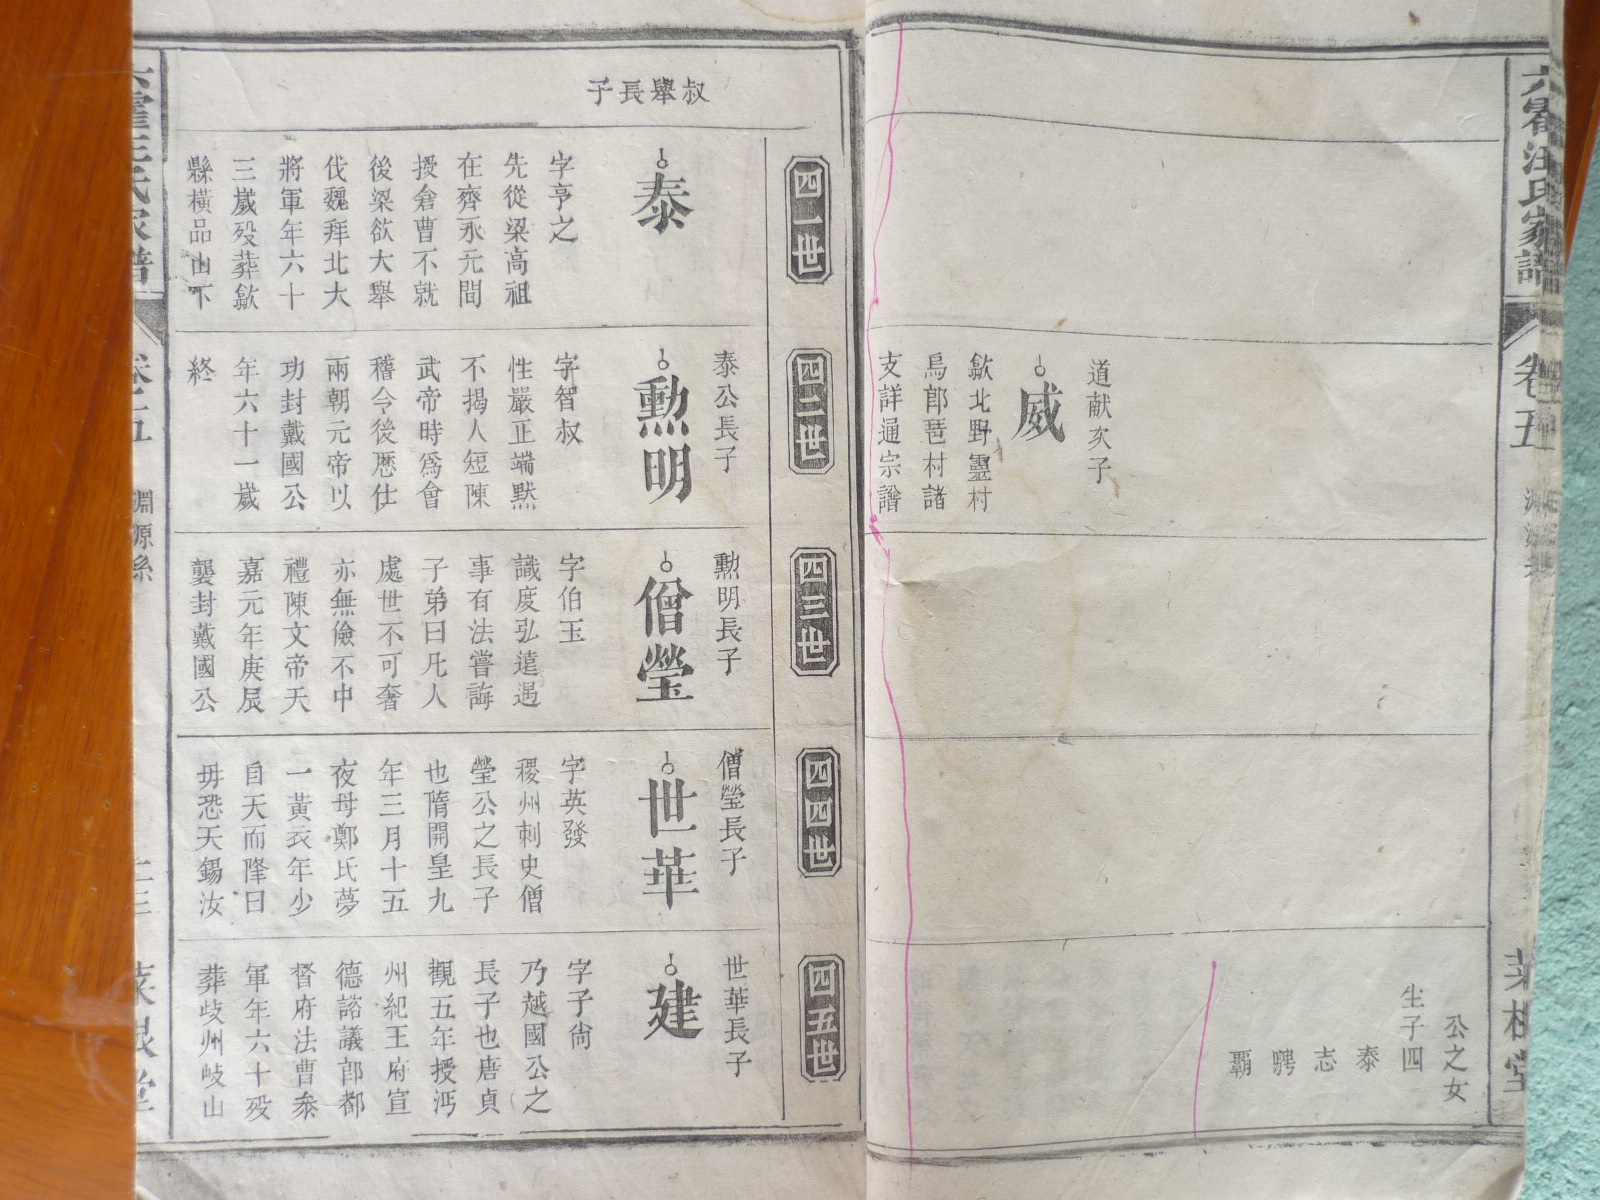 六霍汪氏家譜
卷五
菜根堂
公之女
生子四
泰
志
騁
覇
道献次子
威
歙北野靈村
烏郎琶村諸
支詳通宗譜
四一世
四二世
四三世
四四世
四五世
叔舉長子
泰
字亨之
先從梁高祖
在齊永元間
授倉曹不就
後梁欲大舉
伐魏拜北大
將軍年六十
三歲歿葬歙
縣橫品山下
泰公長子
勲明
字智叔
性嚴正端默
不揭人短陳
武帝時爲會
稽令後歷仕
兩朝元帝以
功封戴國公
年六十一歲
終
勲明長子
僧瑩
字伯玉
識度弘遠遇
事有法嘗誨
子弟曰凡人
處世不可奢
亦無儉不中
禮陳文帝天
嘉元年庚辰
襲封戴國公
僧瑩長子
世華
字英發
稷州刺史僧
瑩公之長子
也隋開皇九
年三月十五
夜母鄭氏夢
一黃衣年少
自天而降曰
毋恐天錫汝
世華長子
建
字子尙
乃越國公之
長子也唐貞
觀五年授沔
州紀王府宣
德諮議郎都
督府法曹叅
軍年六十歿
葬歧州岐山
卷五
淵源系